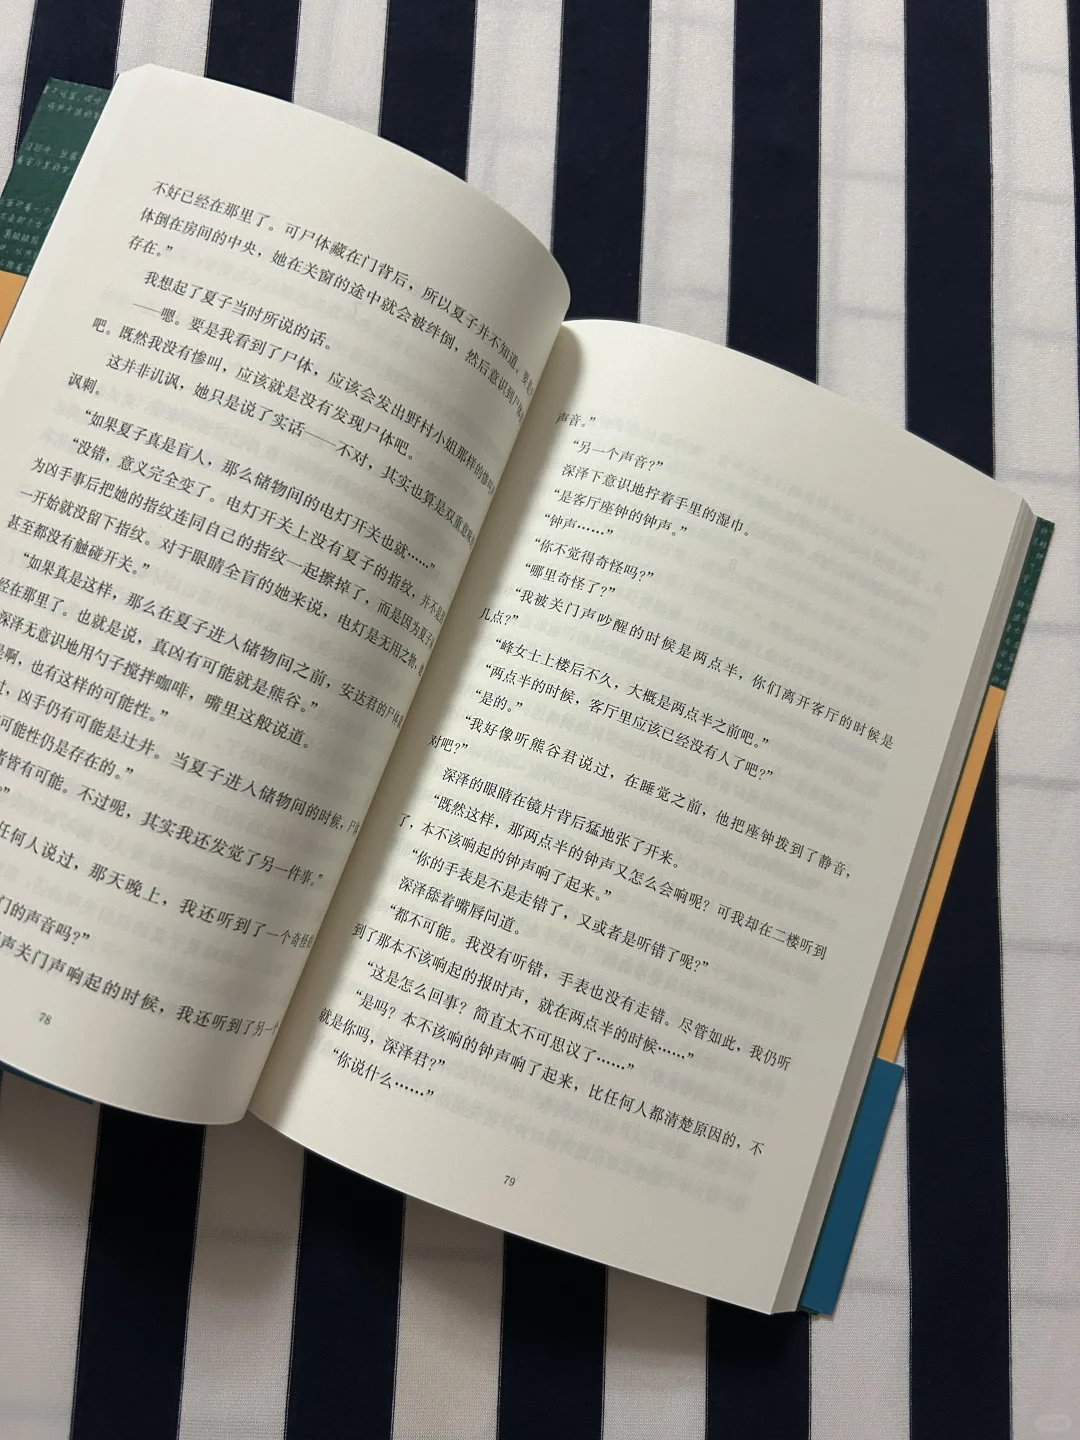 不好已经在那里了。可尸体藏在门背后，所以夏子并不知道。要是
体倒在房间的中央，她在关窗的途中就会被绊倒，然后意识到尸体
存在。”
我想起了夏子当时所说的话。
——嗯。要是我看到了尸体，应该会发出野村小姐那样的惨叫
吧。既然我没有惨叫，应该就是没有发现尸体吧。
这并非讥讽，她只是说了实话——不对，其实也算是双重意
讽刺。
“如果夏子真是盲人，那么储物间的电灯开关也就……”
“没错，意义完全变了。电灯开关上没有夏子的指纹，并不是
为凶手事后把她的指纹连同自己的指纹一起擦掉了，而是因为夏子
一开始就没留下指纹。对于眼睛全盲的她来说，电灯是无用之物，
甚至都没有触碰开关。”
“如果真是这样，那么在夏子进入储物间之前，安达君的尸体
经在那里了。也就是说，真凶有可能就是熊谷。”
深泽无意识地用勺子搅拌咖啡，嘴里这般说道。
是啊，也有这样的可能性。”
过，凶手仍有可能是辻井。当夏子进入储物间的时候，尸体
可能性仍是存在的。”
者皆有可能。不过呢，其实我还发觉了另一件事。”
”
任何人说过，那天晚上，我还听到了一个奇怪
门的声音吗？”
声关门声响起的时候，我还听到了另一个
78
声音。”
“另一个声音？”
深泽下意识地拧着手里的湿巾。
“是客厅座钟的钟声。”
“钟声……”
“你不觉得奇怪吗？”
“哪里奇怪了？”
“我被关门声吵醒的时候是两点半，你们离开客厅的时候是
几点？”
“峰女士上楼后不久，大概是两点半之前吧。”
“两点半的时候，客厅里应该已经没有人了吧？”
“是的。”
“我好像听熊谷君说过，在睡觉之前，他把座钟拨到了静音，
对吧？”
深泽的眼睛在镜片背后猛地张了开来。
“既然这样，那两点半的钟声又怎么会响呢？可我却在二楼听到
了，本不该响起的钟声响了起来。”
“你的手表是不是走错了，又或者是听错了呢？”
深泽舔着嘴唇问道。
“都不可能。我没有听错，手表也没有走错。尽管如此，我仍听
到了那本不该响起的报时声，就在两点半的时候……”
“这是怎么回事？简直太不可思议了……”
“是吗？本不该响的钟声响了起来，比任何人都清楚原因的，不
就是你吗，深泽君？”
“你说什么……”
79